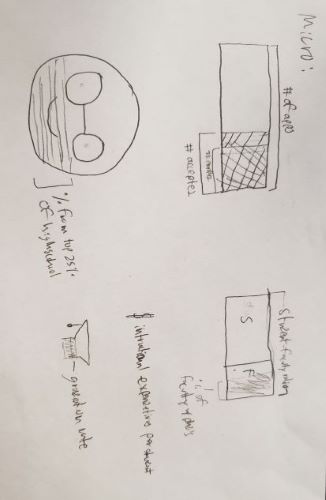 Micro:
# of apps
# accepted
Student-faculty ratio
S
F
% of
faculty w/ PhDs
$ instructional expenditure per student
% from top 25%
of highschool
graduation rate